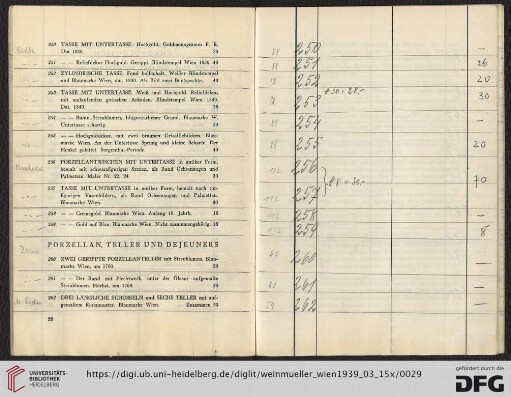 250 TASSE MIT UNTERTASSE. Hochgold. Goldmonogramm F. R.
Um 1830. 30
251 — — Reliefdekor Hochgold. Gerippt. Blindstempel Wien 1826. 40
252 ZYLINDRISCHE TASSE. Fond hellschalt. Weißer Blindstempel
und Blaumarke Wien, dat. 1830. Als Bild zwei Buntspechte. 40
253 TASSE MIT UNTERTASSE. Weiß und Hochgold. Reliefdekor,
mit umlaufenden gotischen Arkaden. Blindstempel Wien 1840.
Dat. 1840. 30
254 — — Bunte Streublumen, Blaumarke W.
Untertasse schartig 30
255 — — Hochgolddekor, mit zwei braunen Grisaillebildern. Blau-
marke Wien. An der Untertasse Sprung und kleine Scharte. Der
Henkel gekittet. Sorgenthal-Periode. 40
256 PORZELLANTÄSSCHEN MIT UNTERTASSE in antiker Form,
bemalt mit schwarzfigurigen Szenen, als Rand Ochsenaugen und
Palmetten. Maler Nr. 22. 24. 30
257 TASSE MIT UNTERTASSE in antiker Form, bemalt nach rot-
figurigen Vasenbildern, als Rand Ochsenaugen und Palmetten.
Blaumarke Wien. 80
258 — — Cremegold. Blaumarke Wien. Anfang 19. Jahrh. 15
259 — — Gold auf Blau. Blaumarke Wien. Nicht zusammengehörig. 15
PORZELLAN, TELLER UND DEJEUNERS
260 ZWEI GERIPPTE PORZELLANTELLER mit Streublumen. Blau-
marke Wien, um 1760. 20
261 — — Der Rand mit Flechtwerk, unter der Glasur aufgemalte
Streublumen. Höchst, um 1760. 40
262 DREI LÄNGLICHE SCHÜSSELN und SECHS TELLER mit auf-
gemaltem Rosenmuster. Blaumarke Wien. Zusammen 50
28
250 —
251 26
252 20
253 30
254 —
255 20
256
257 70
258 —
259 8
260 —
261 —
262 —
UNIVERSITÄTS-
BIBLIOTHEK
HEIDELBERG
https://digi.ub.uni-heidelberg.de/diglit/weinmueller_wien1939_03_15x/0029
gefördert durch die
DFG